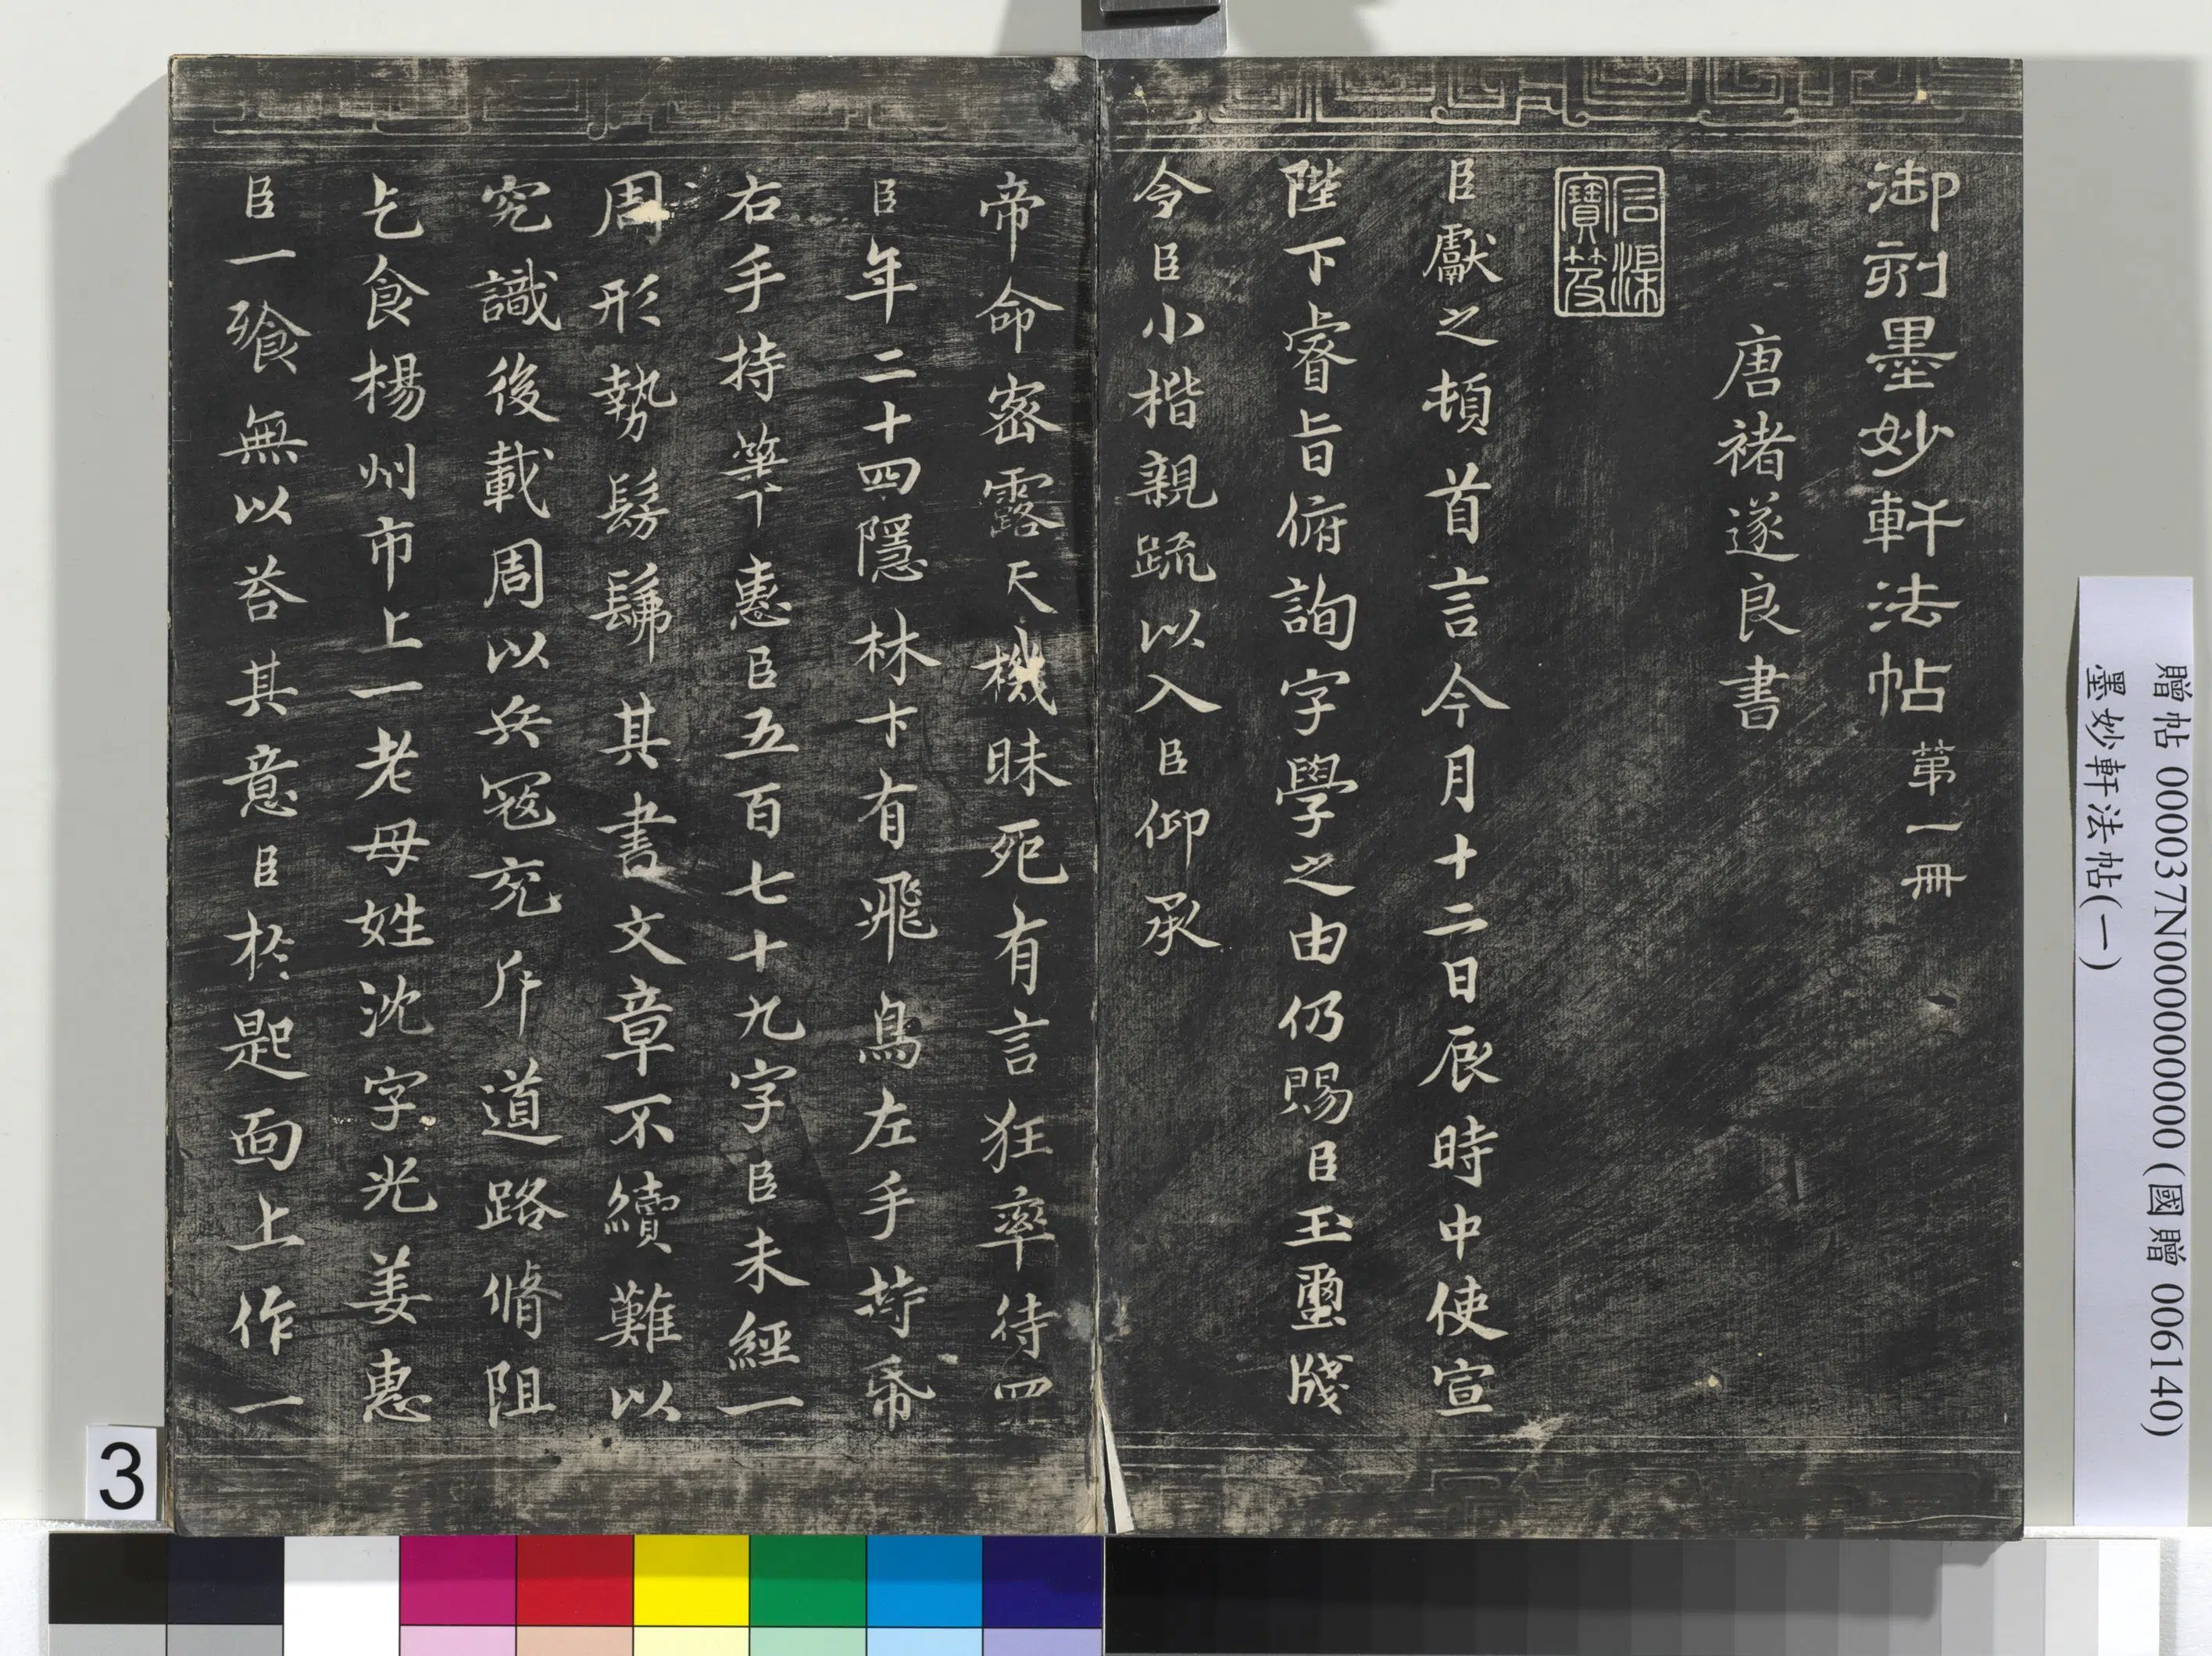 御刻墨妙軒法帖 第一冊
唐褚遂良書
石渠
寶笈
臣獻之頓首言今月十二日辰時中使宣
陛下睿旨俯詢字學之由仍賜臣玉璽牋
令臣小楷親疏以入臣仰承
帝命密露天機昧死有言狂率待罪
臣年二十四隱林下有飛鳥左手持帋
右手持筆惠臣五百七十九字臣未經一
周形勢髣髴其書文章不續難以
究識後載周以兵寇充斥道路脩阻
乞食楊州市上一老母姓沈字光姜惠
臣一飡無以荅其意臣於匙面上作一
贈帖 000037N000000000 (國贈 006140)
墨妙軒法帖(一)
3